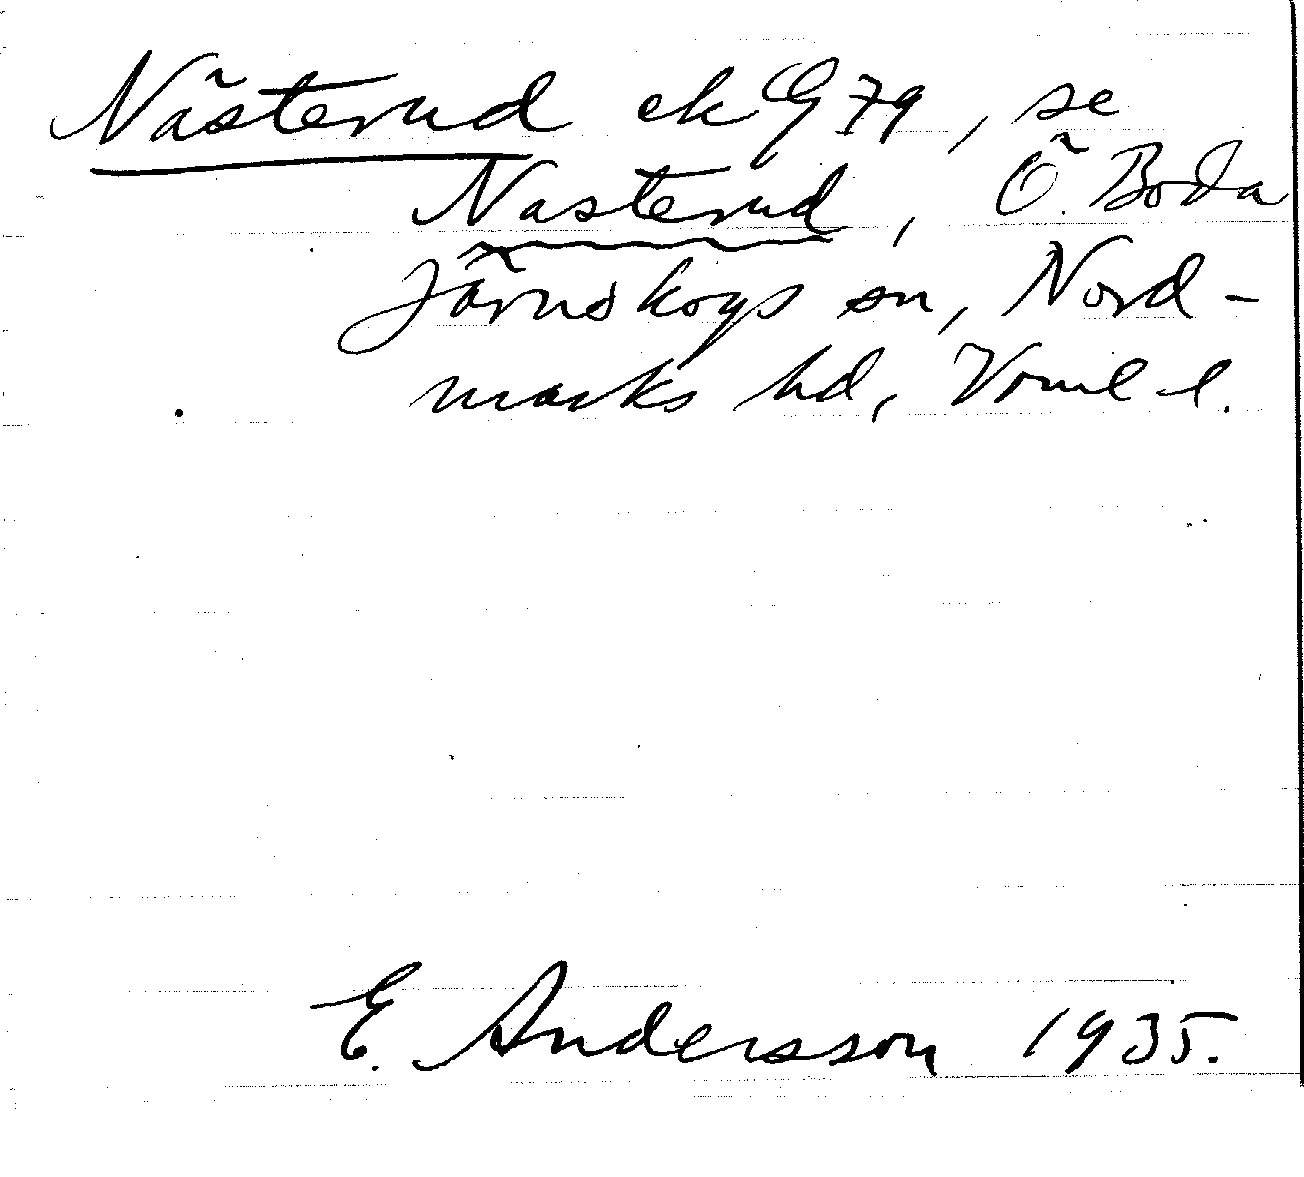 Nästerud ek G 79, se
Nasterud, Ö. Boda
Järnskogs sn, Nord-
marks hd, Vrml l.
E. Andersson 1935.